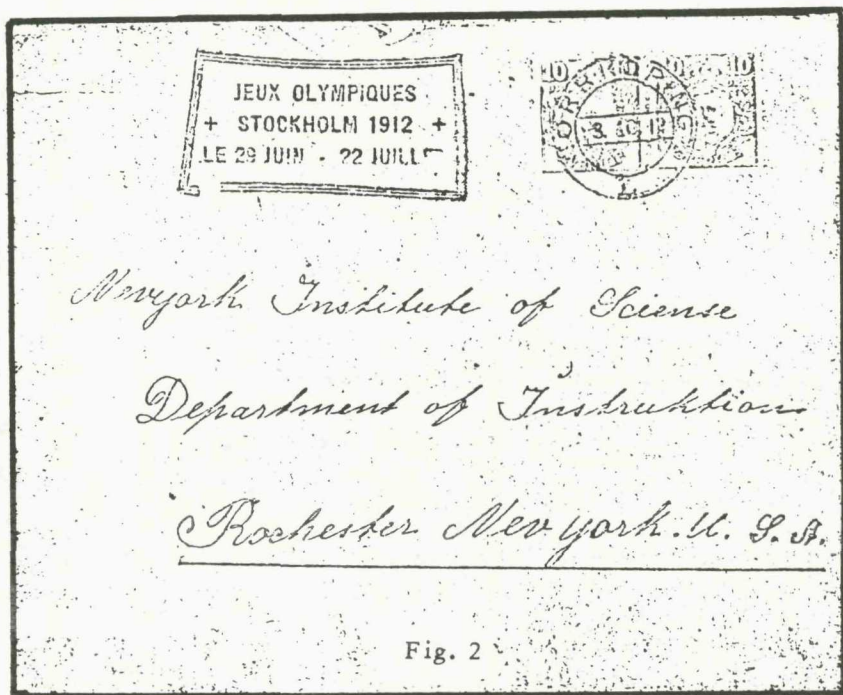 JEUX OLYMPIQUES
+ STOCKHOLM 1912 +
LE 29 JUIN - 22 JUILLET
10 10 10
NORRKÖPING
Newyork Institute of Sciense
Department of Instruktion
Rochester New york. U. S. A.
Fig. 2